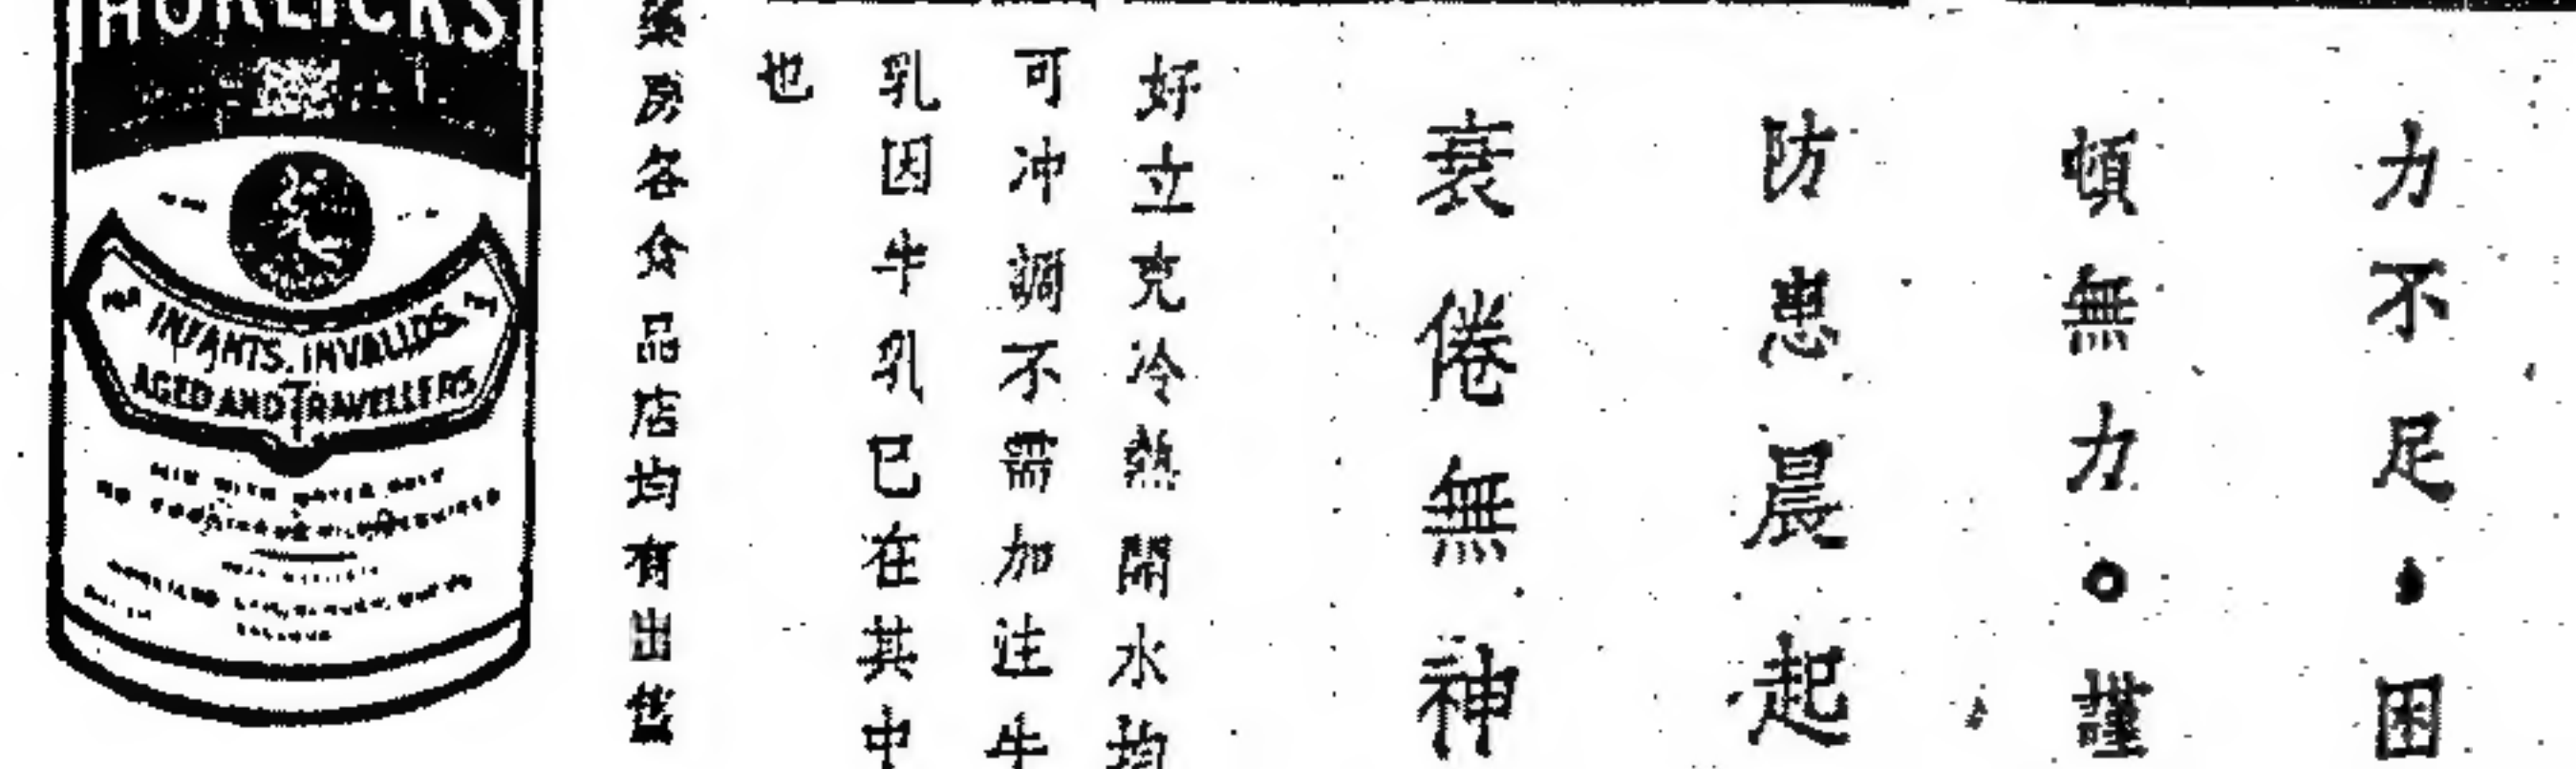 力不足，困
頓無力。謹
防患晨起
衰倦無神
好立克冷熱開水均
可冲調不需加注牛
乳因牛乳已在其中
也
房各食品店均有出售
HORLICKS
INFANTS, INVALIDS,
AGED AND TRAVELLERS
MIX WITH WATER ONLY